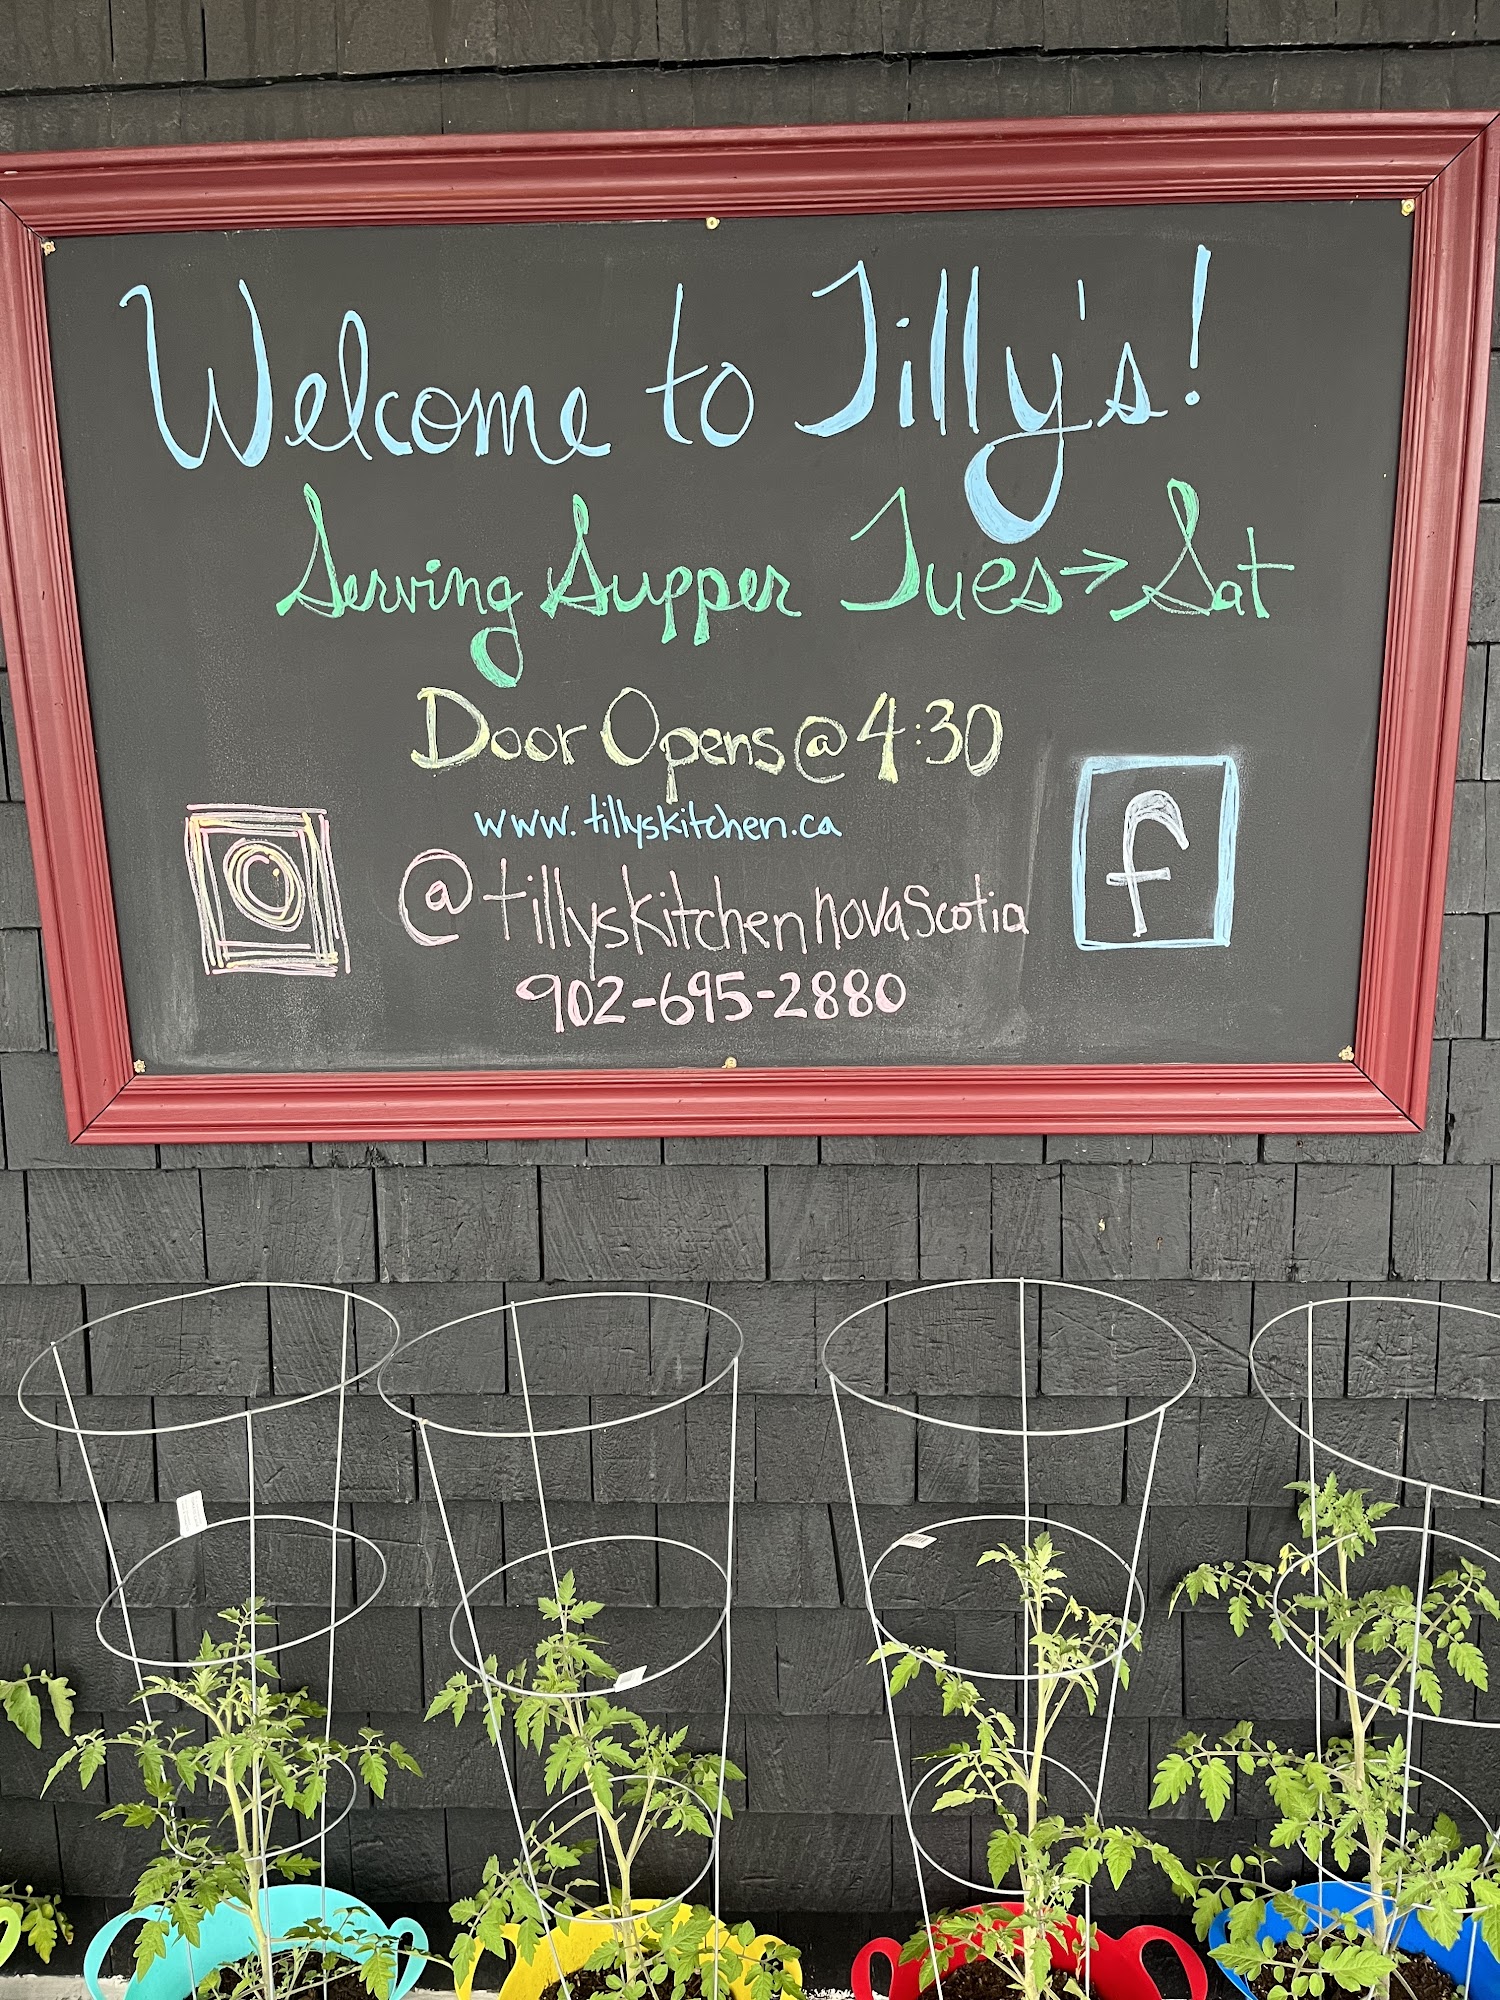 Welcome to Tilly's!
Serving Supper Tues → Sat
Door Opens @ 4:30
www.tillyskitchen.ca
@tillyskitchennovaScotia
902-695-2880
f